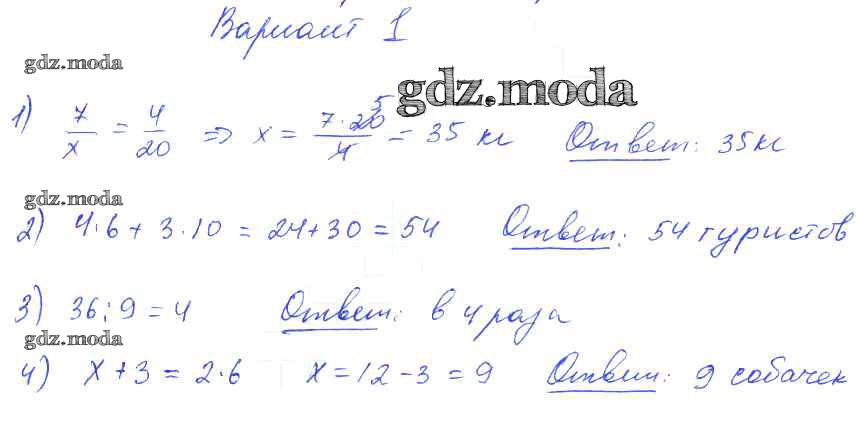 Вариант 1
gdz.moda
gdz.moda
1) 7/x = 4/20 => x = 7·20/4 5 = 35 кг Ответ: 35кг
gdz.moda
2) 4·6 + 3·10 = 24+30 = 54 Ответ: 54 туристов
3) 36:9 = 4 Ответ: в 4 раза
gdz.moda
4) x + 3 = 2·6 x = 12 - 3 = 9 Ответ: 9 собачек